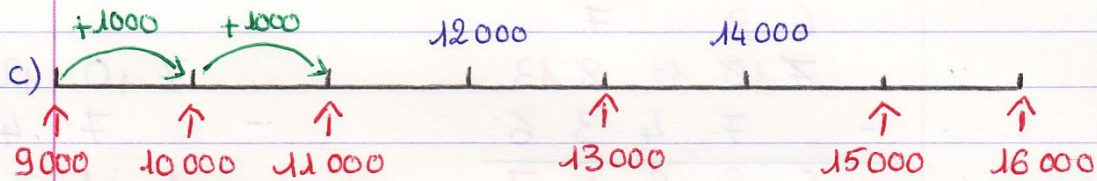 +1000 +1000 12 000 14 000
c)
9 000 10 000 11 000 13 000 15 000 16 000